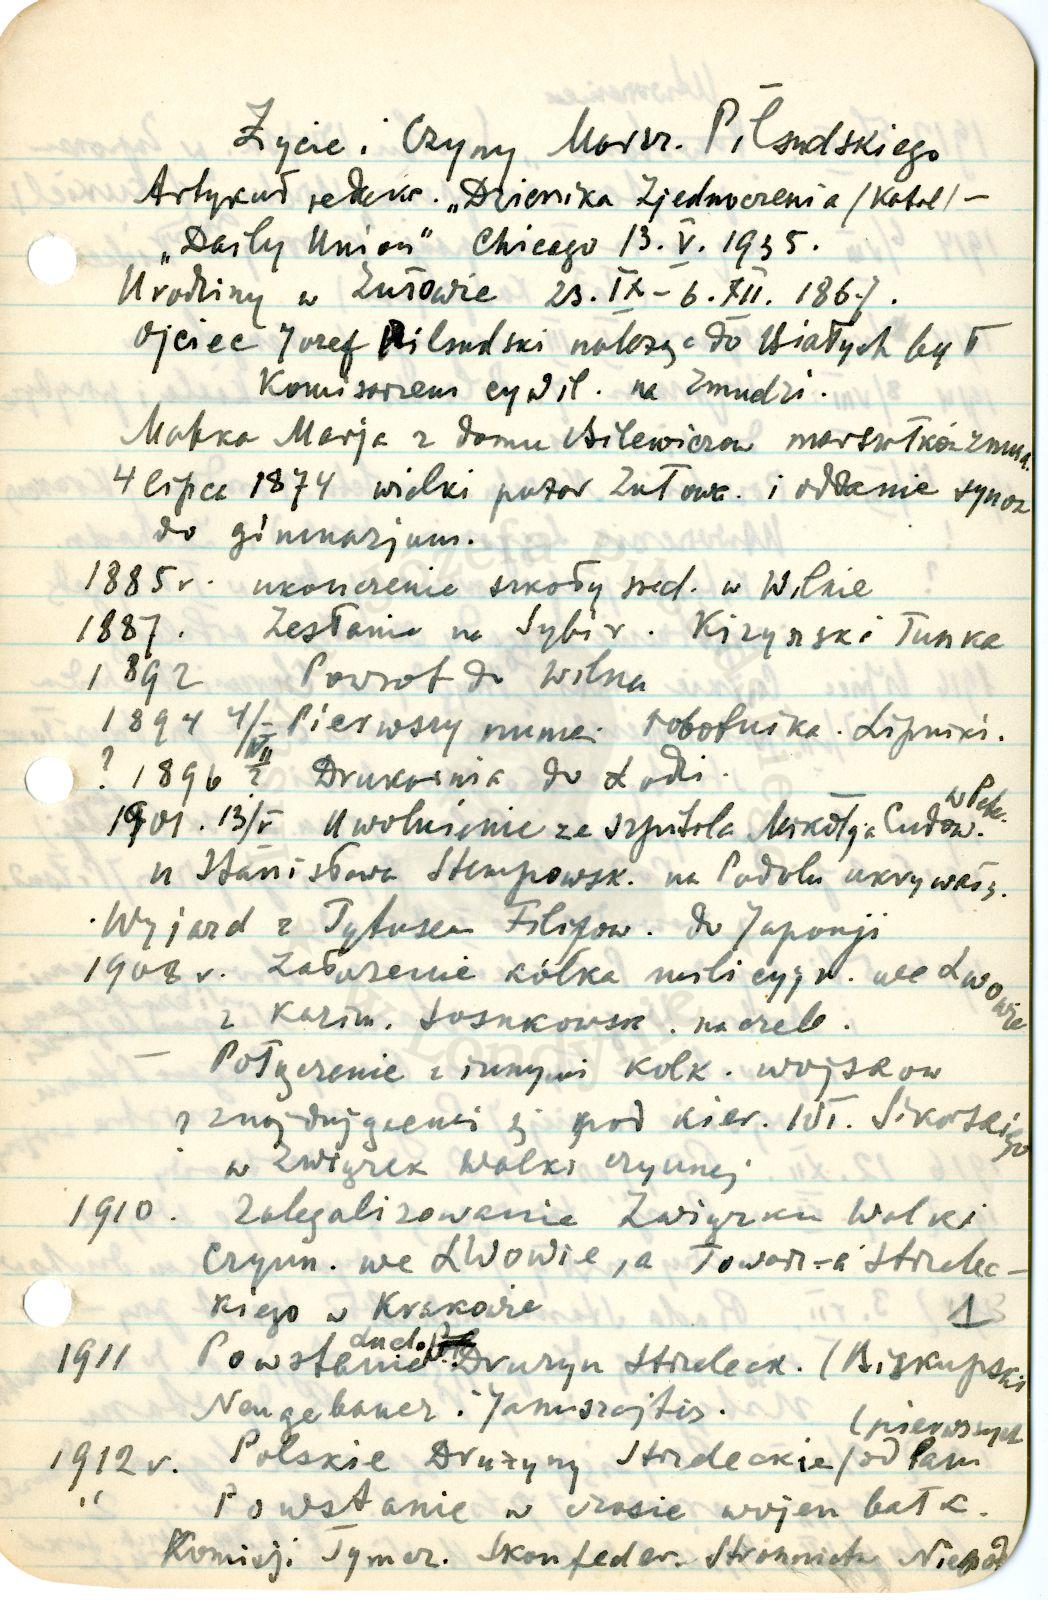 Życie i Czyny Marsz. Piłsudskiego
Artykuł redakc. „Dziennika Zjednoczenia /Katol/ –
„Daily Union" Chicago 13. V. 1935.
Urodziny w Zułowie 23. IX – 6. XII. 1867.
Ojciec Józef Piłsudski należąc do Białych był
Komisarzem cywil. na Żmudzi.
Matka Marja z domu Bilewiczów
4 lipca 1874 wielki pożar Zułowa. i oddanie synów
do gimnazjum.
1885 r. ukończenie szkoły śred. w Wilnie
1887. Zesłanie na Sybir. Kiryński Tunka
1892 Powrót do Wilna
1894 Pierwszy numer robotnika. Lipniki.
? 1896 Drukarnia do Łodzi.
1901. 13/V Uwolnienie ze szpitala Mikołaja Cudow. w Pete.
u Stanisława Stempowsk. na Podolu ukrywają.
Wyjazd z Tytusem Filipow. do Japonji
1908 r. Założenie kółka milicyjn. we Lwowie
z Kazim. Sosnkowsk. na czele.
– Połączenie z innymi kółk. wojskow
? znajdującemi się pod kier. Wł. Sikorskiego
w Związek Walki czynnej
1910. Zalegalizowanie Związku Walki
Czynn. we Lwowie, a Towarz-a Strzelec-
kiego w Krakowie
1
1911 Powstanie Drużyn Strzeleck. (Biskupski
Neugebauer i Januszajtis.
(pierwszych
1912 r. Polskie Drużyny Strzeleckie /od Pam
" Powstanie w czasie wojen bałk.
Komisji Tymcz. Skonfeder. Stronnictw Niepod